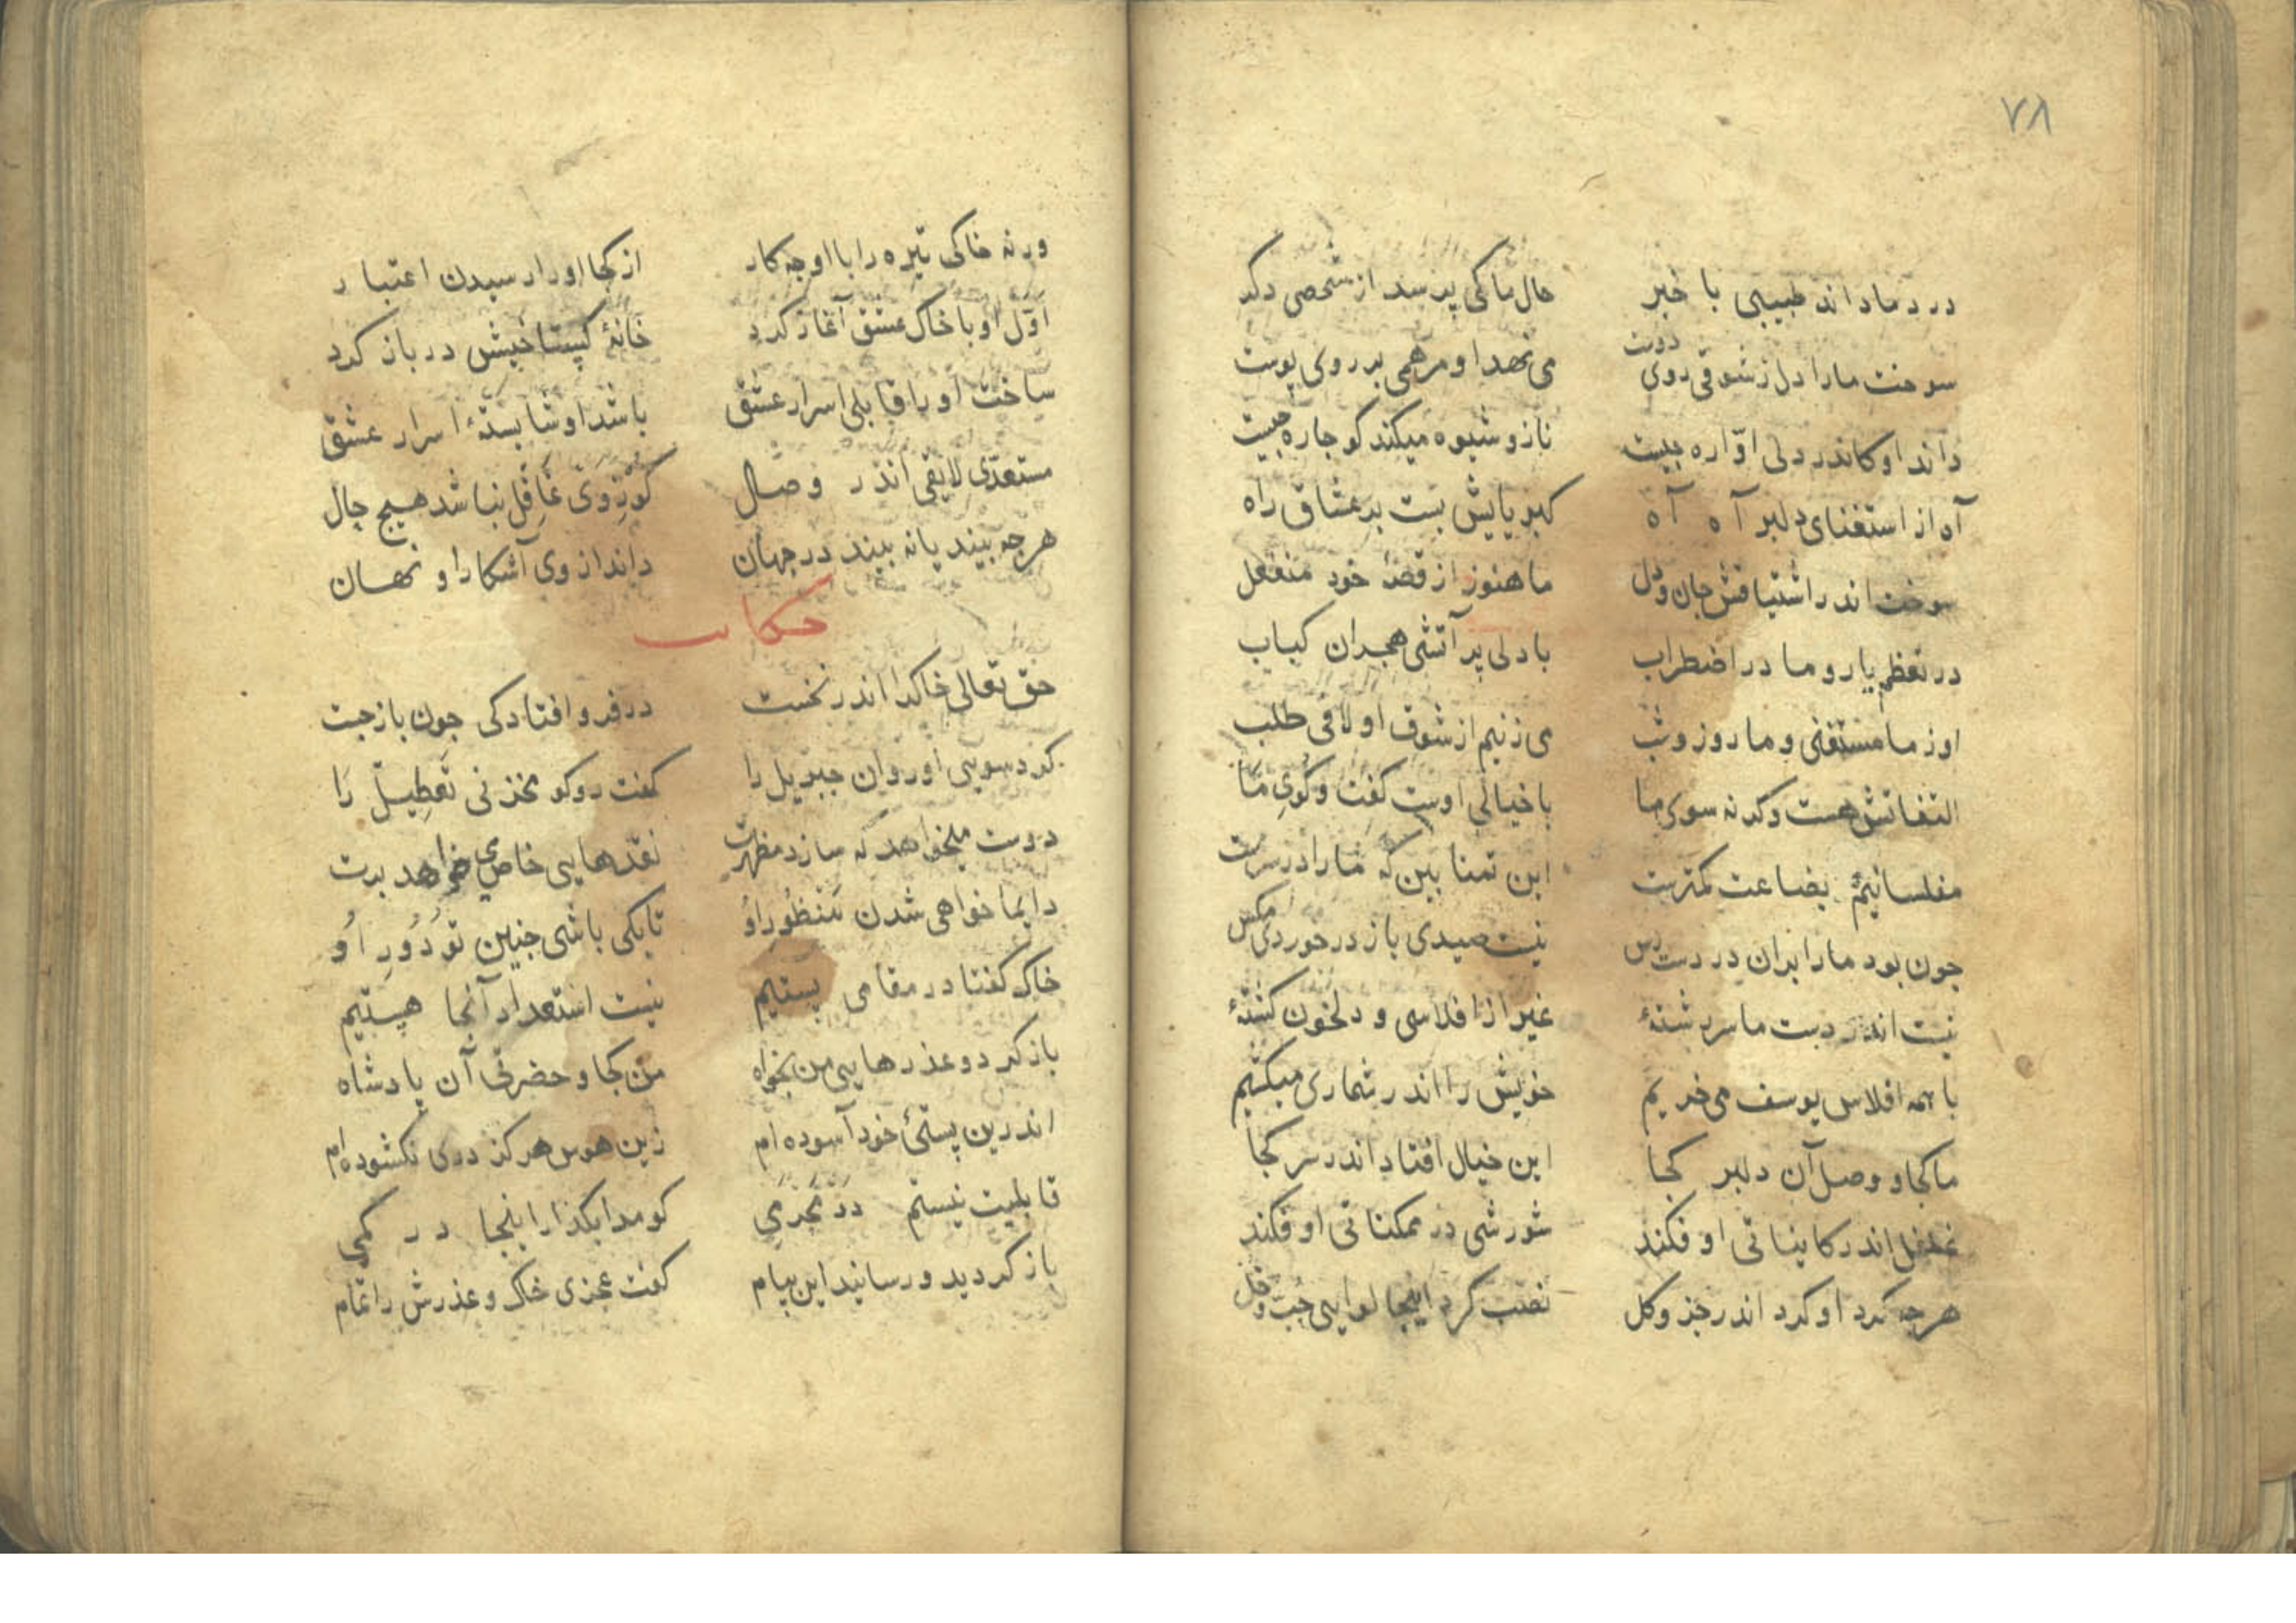 ۷۸
درد ما داند طبیبی با خبر حال ما کی پرسد از شخصی دکر
سوخت مارا دل ز شوقی روی دوست می نهد او مرهمی بر روی پوست
داند او کاندر دلی اوّاره چیست ناز و شیوه میکند کو چاره چیست
آه از استغنای دلبر آه آه کبریاییش بست بر عشاق راه
سوخت اندر اشتیاقش جان و دل ما هنوز از قصهٔ خود منفعل
در تعظم یار و ما در اضطراب با دلی پر آتشی هجران کباب
او ز ما مستغنی و ما روز و شب می زنیم از شوق او لافی طلب
التفاتش هست وکرنه سوی ما با خیالی اوست کفت و کوی ما
مفلسانیم بضاعت کمترست این تمنا بین که ما را در سرست
جون بود مارا بران در دست رس نیست صیدی باز در خوردی مکس
نیست اندر دست ما سر رشتهٔ غیر از افلاسی و دلخون کشتهٔ
با همه افلاس یوسف می خریم خویش را اندر شماری میکشیم
ما کجا و وصل آن دلبر کجا این خیال افتاد اندر سر کجا
غلغل اندر کایناتی او فکند شورشی در ممکناتی او فکند
هرجه کرد او کرد اندر جز و کل نصب کرد اینجا لوایی
ورنه خاکی تیره را با او جه کار از کجا او را رسیدن اعتبار
اوّل او با خاک عشق آغاز کرد خانهٔ کستاخیش در باز کرد
ساخت او را قابلی اسرار عشق باشد او شایستهٔ اسرار عشق
مستعدّی لایقی اندر وصال کو ز وی غافل نباشد هیچ حال
هرجه بیند یا نه بیند در جهان داند از وی آشکارا و نهان
حکایت
حق تعالی خاکرا اندر نخست در فرو افتادکی جون باز جست
کرد سویی او روان جبریل را کفت رو کو مخزنی تعطیل را
دوست میخواهد که سازد مظهرت نقدهایی خاص خواهد برت
دایما خواهی شدن منظور او تا بکی باشی جنین تو دور او
خاک کفتا در مقامی پستیم نیست استعداد آنجا هستیم
باز کرد و عذرهایی من بخواه من کجا و حضرتی آن پادشاه
اندرین پستیٔ خود آسوده ام زین هوس هرکز دری نکشوده ام
قابلیت نیستم در محرمی کو مرا بکذار اینجا در کمی
باز کردید و رسانید این پیام کفت عجزی خاک و عذرش را تمام